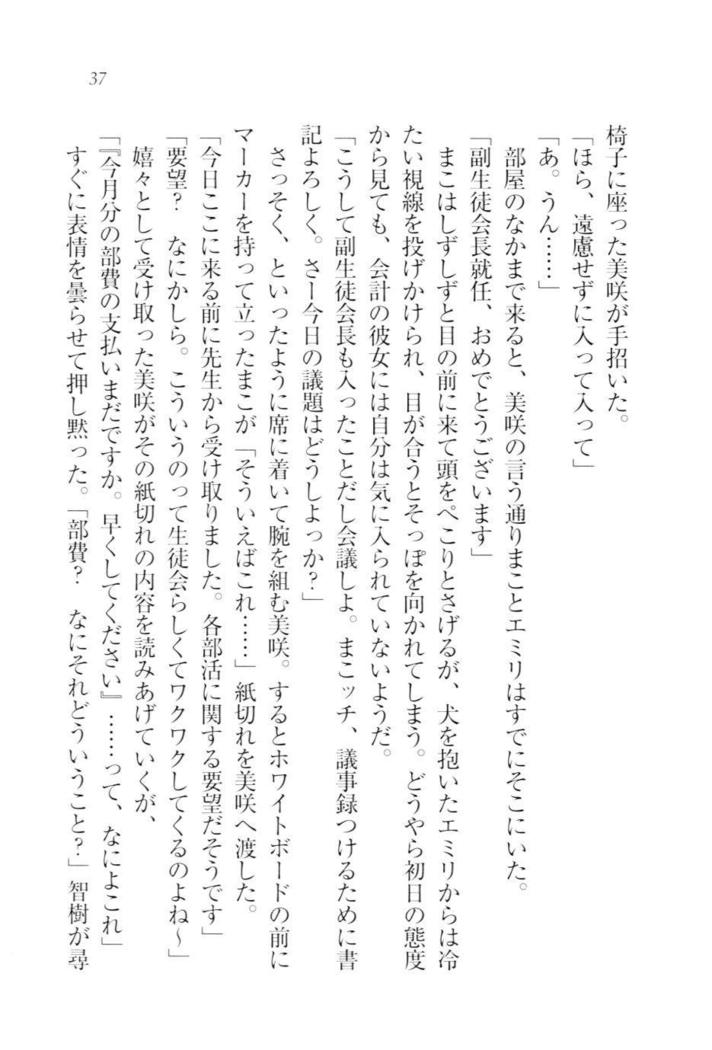 37
椅子に座った美咲が手招いた。
「ほら、遠慮せずに入って入って」
「あ。うん……」
部屋のなかまで来ると、美咲の言う通りまことエミリはすでにそこにいた。
「副生徒会長就任、おめでとうございます」
まこはしずしずと目の前に来て頭をぺこりとさげるが、犬を抱いたエミリからは冷
たい視線を投げかけられ、目が合うとそっぽを向かれてしまう。どうやら初日の態度
から見ても、会計の彼女には自分は気に入られていないようだ。
「こうして副生徒会長も入ったことだし会議しよ。まこッチ、議事録つけるために書
記よろしく。さー今日の議題はどうしよっか？」
さっそく、といったように席に着いて腕を組む美咲。するとホワイトボードの前に
マーカーを持って立ったまこが「そういえばこれ……」紙切れを美咲へ渡した。
「今日ここに来る前に先生から受け取りました。各部活に関する要望だそうです」
「要望？　なにかしら。こういうのって生徒会らしくてワクワクしてくるのよね～」
嬉々として受け取った美咲がその紙切れの内容を読みあげていくが、
「『今月分の部費の支払いまだですか。早くしてください』……って、なによこれ」
すぐに表情を曇らせて押し黙った。「部費？　なにそれどういうこと？」智樹が尋